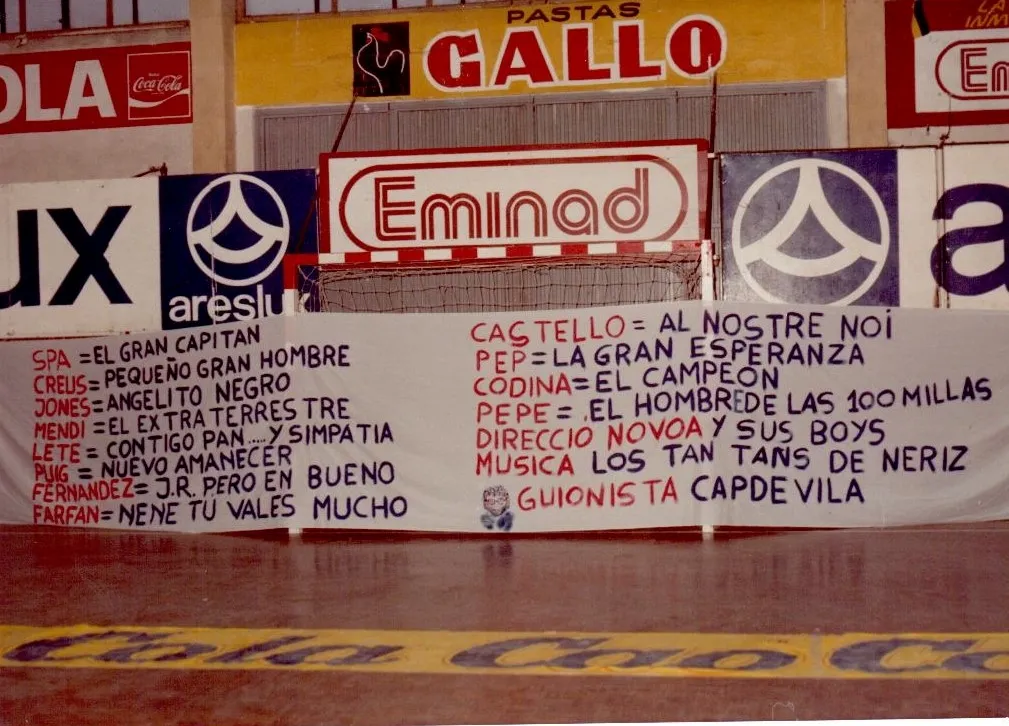 PASTAS
GALLO
OLA
Coca-Cola
LA
INM
Em
Eminad
ux
areslux
a
SPA = EL GRAN CAPITAN
CREUS = PEQUEÑO GRAN HOMBRE
JONES = ANGELITO NEGRO
MENDI = EL EXTRA TERRESTRE
LETE = CONTIGO PAN.....Y SIMPATIA
PUIG = NUEVO AMANECER
FERNANDEZ = J.R. PERO EN BUENO
FARFAN = NENE TU VALES MUCHO
CASTELLO = AL NOSTRE NOI
PEP = LA GRAN ESPERANZA
CODINA = EL CAMPEON
PEPE = EL HOMBRE DE LAS 100 MILLAS
DIRECCIO NOVOA Y SUS BOYS
MUSICA LOS TAN TANS DE NERIZ
GUIONISTA CAPDEVILA
Cola Cao Co